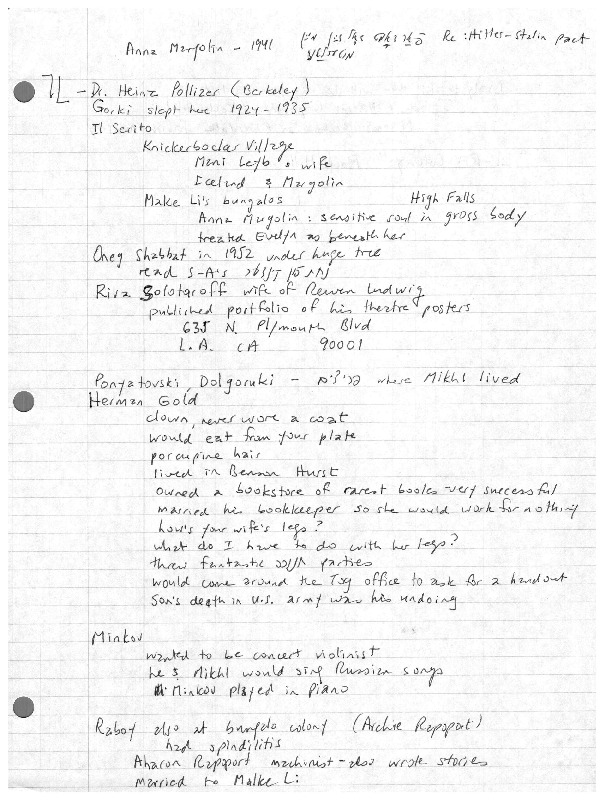 Anna Margolin - 1941 Re: Hitler-Stalin pact
IL - Dr. Heinz Pollizer (Berkeley)
Gorki slept here 1924-1935
Il Sorito
Knickerbocker Village
Mani Leyb & wife
Iceland & Margolin
Malke Li's bungalos High Falls
Anna Margolin: sensitive soul in gross body
treated Evelyn as beneath her
Oneg Shabbat in 1952 under huge tree
read S-A's
Risa Solotaroff wife of Reuven Ludwig
published portfolio of his theatre posters
635 N. Plymouth Blvd
L.A. CA 90001
Ponyatovski, Dolgoruki - where Mikhl lived
Herman Gold
clown, never wore a coat
would eat from your plate
porcupine hair
lived in Benson Hurst
owned a bookstore of rarest books - very successful
married his bookkeeper so she would work for nothing
how's your wife's legs?
what do I have to do with her legs?
threw fantastic parties
would come around the Tog office to ask for a handout
Son's death in U.S. army was his undoing
Minkov
wanted to be concert violinist
he & Mikhl would sing Russian songs
Minkov played in piano
Raboy also at bungalo colony (Archie Rapoport)
had spindilitis
Aharon Rapoport machinist - also wrote stories
married to Malke Li